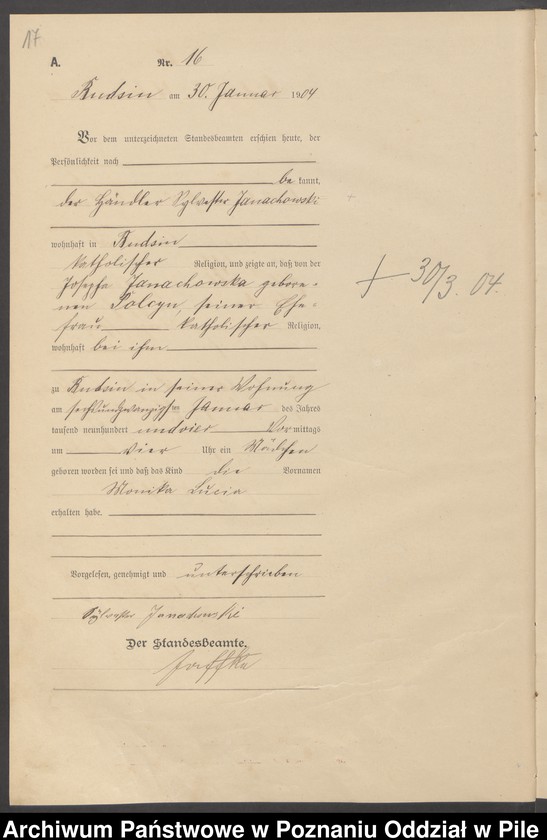 17
A. Nr. 16
Budsin am 30. Januar 1904
Vor dem unterzeichneten Standesbeamten erschien heute, der
Persönlichkeit nach
bekannt,
der Händler Sylvester Janachowski
wohnhaft in Budsin
katholischer Religion, und zeigte an, daß von der
Josepha Janachowska gebore-
nen Polcyn, seiner Ehe-
frau katholischer Religion,
wohnhaft bei ihm
+ 30/3. 04.
zu Budsin in seiner Wohnung
am sechsundzwanzigsten Januar des Jahres
tausend neunhundert und vier Vormittags
um vier Uhr ein Mädchen
geboren worden sei und daß das Kind die Vornamen
Monika Lucia
erhalten habe.
Vorgelesen, genehmigt und unterschrieben
Sylvester Janachowski
Der Standesbeamte.
Archiwum Państwowe w Poznaniu Oddział w Pile